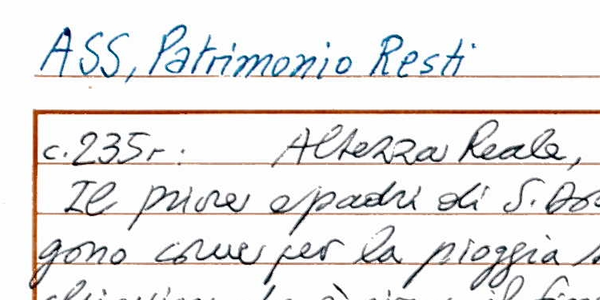 ASS, Patrimonio Resti
c. 235r. Altezza Reale,
Il priore e padri di S. Do
gono come per la pioggia